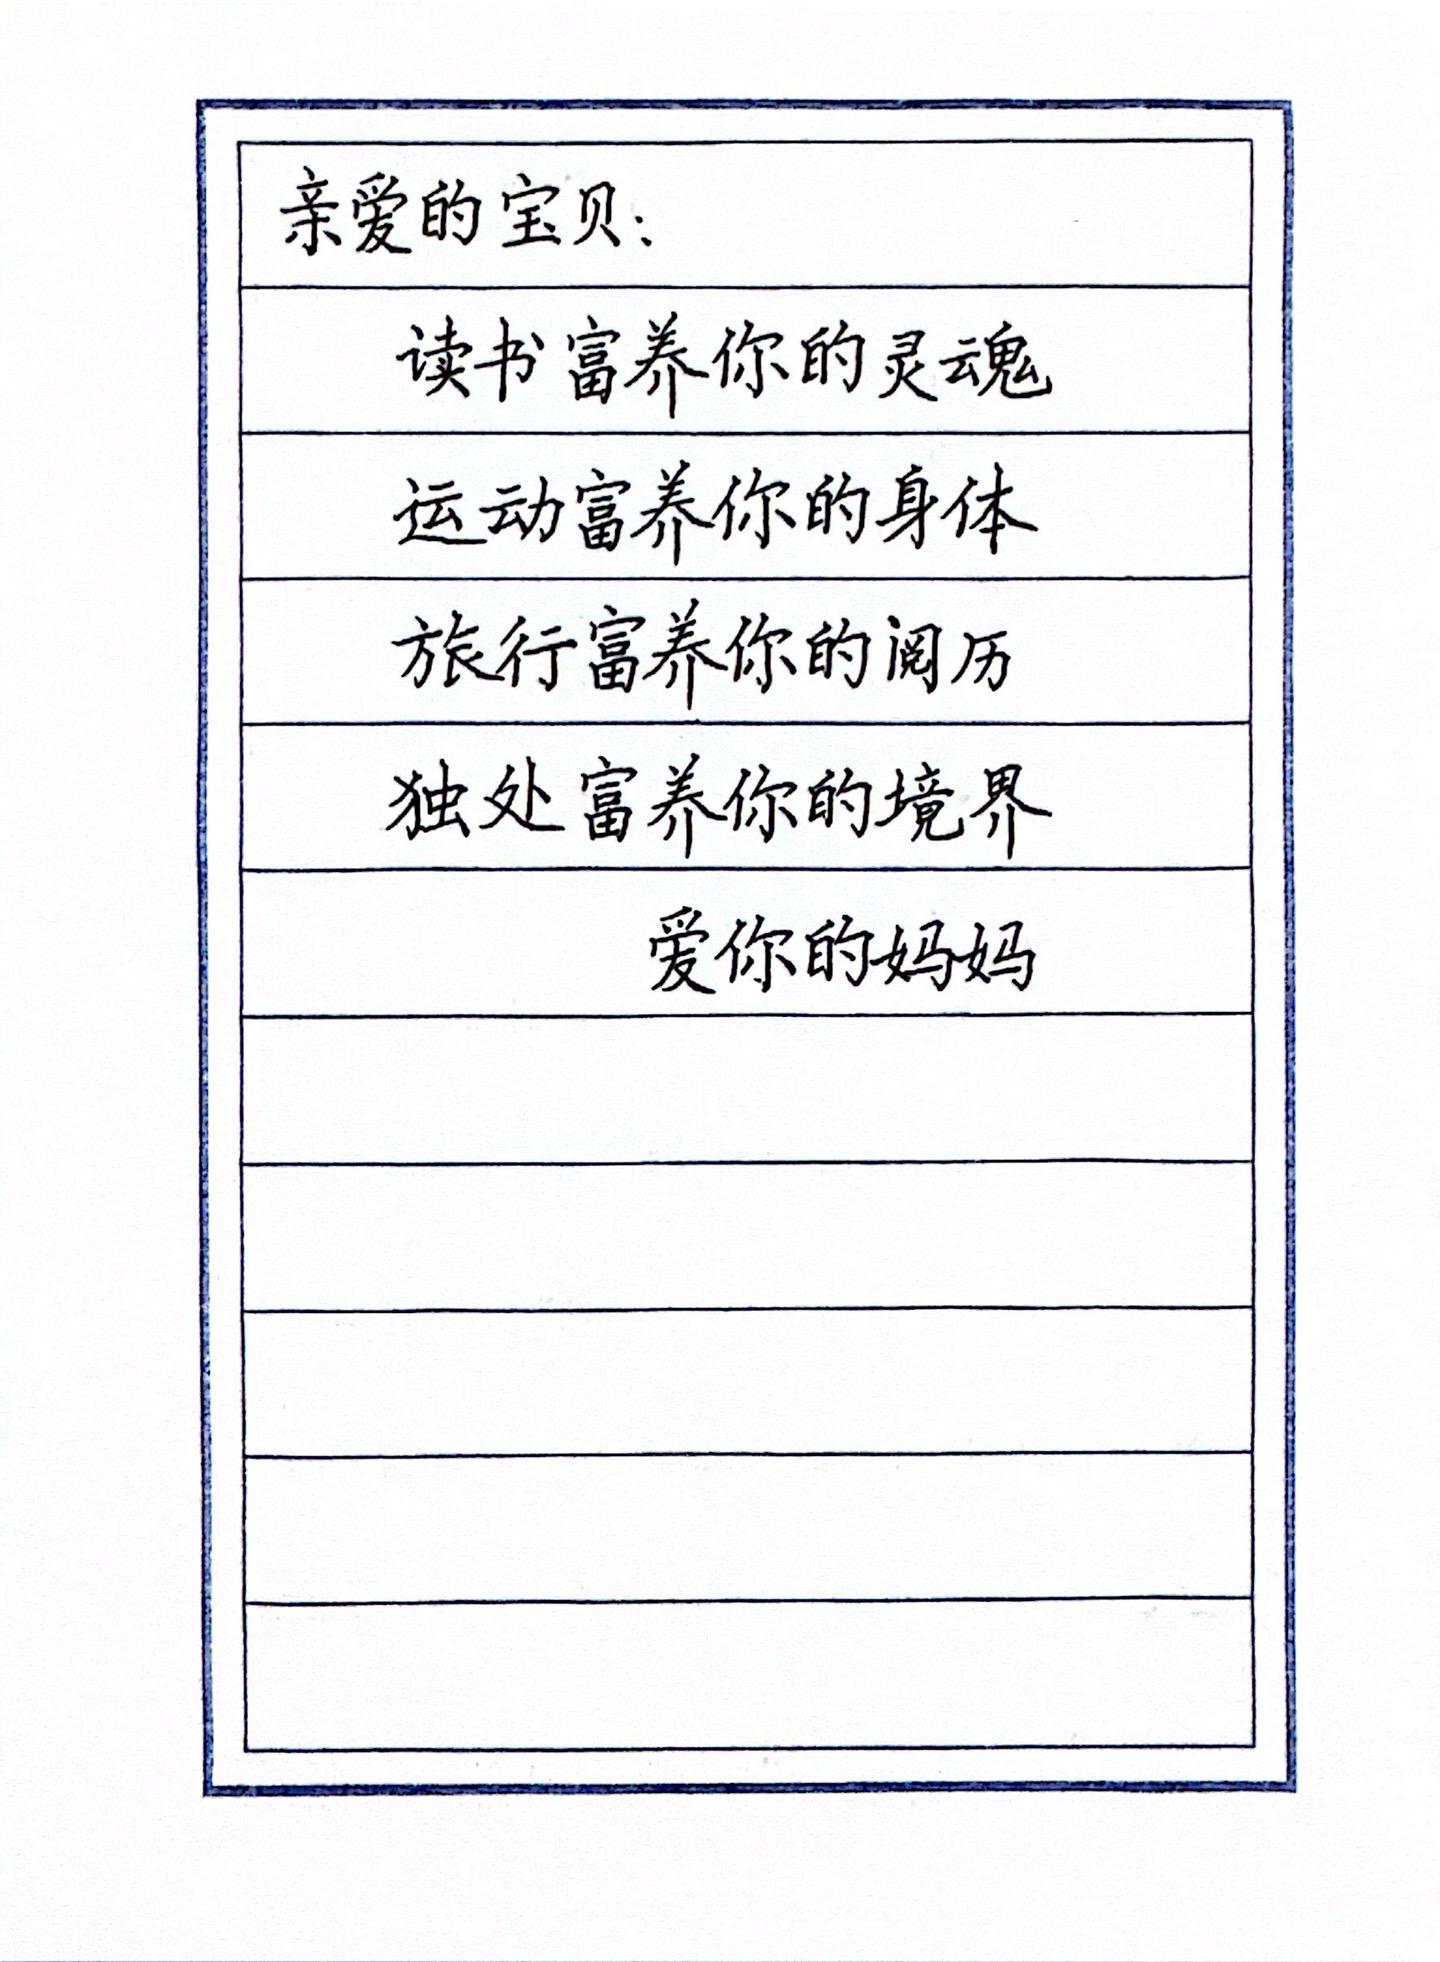 亲爱的宝贝：
读书富养你的灵魂
运动富养你的身体
旅行富养你的阅历
独处富养你的境界
爱你的妈妈